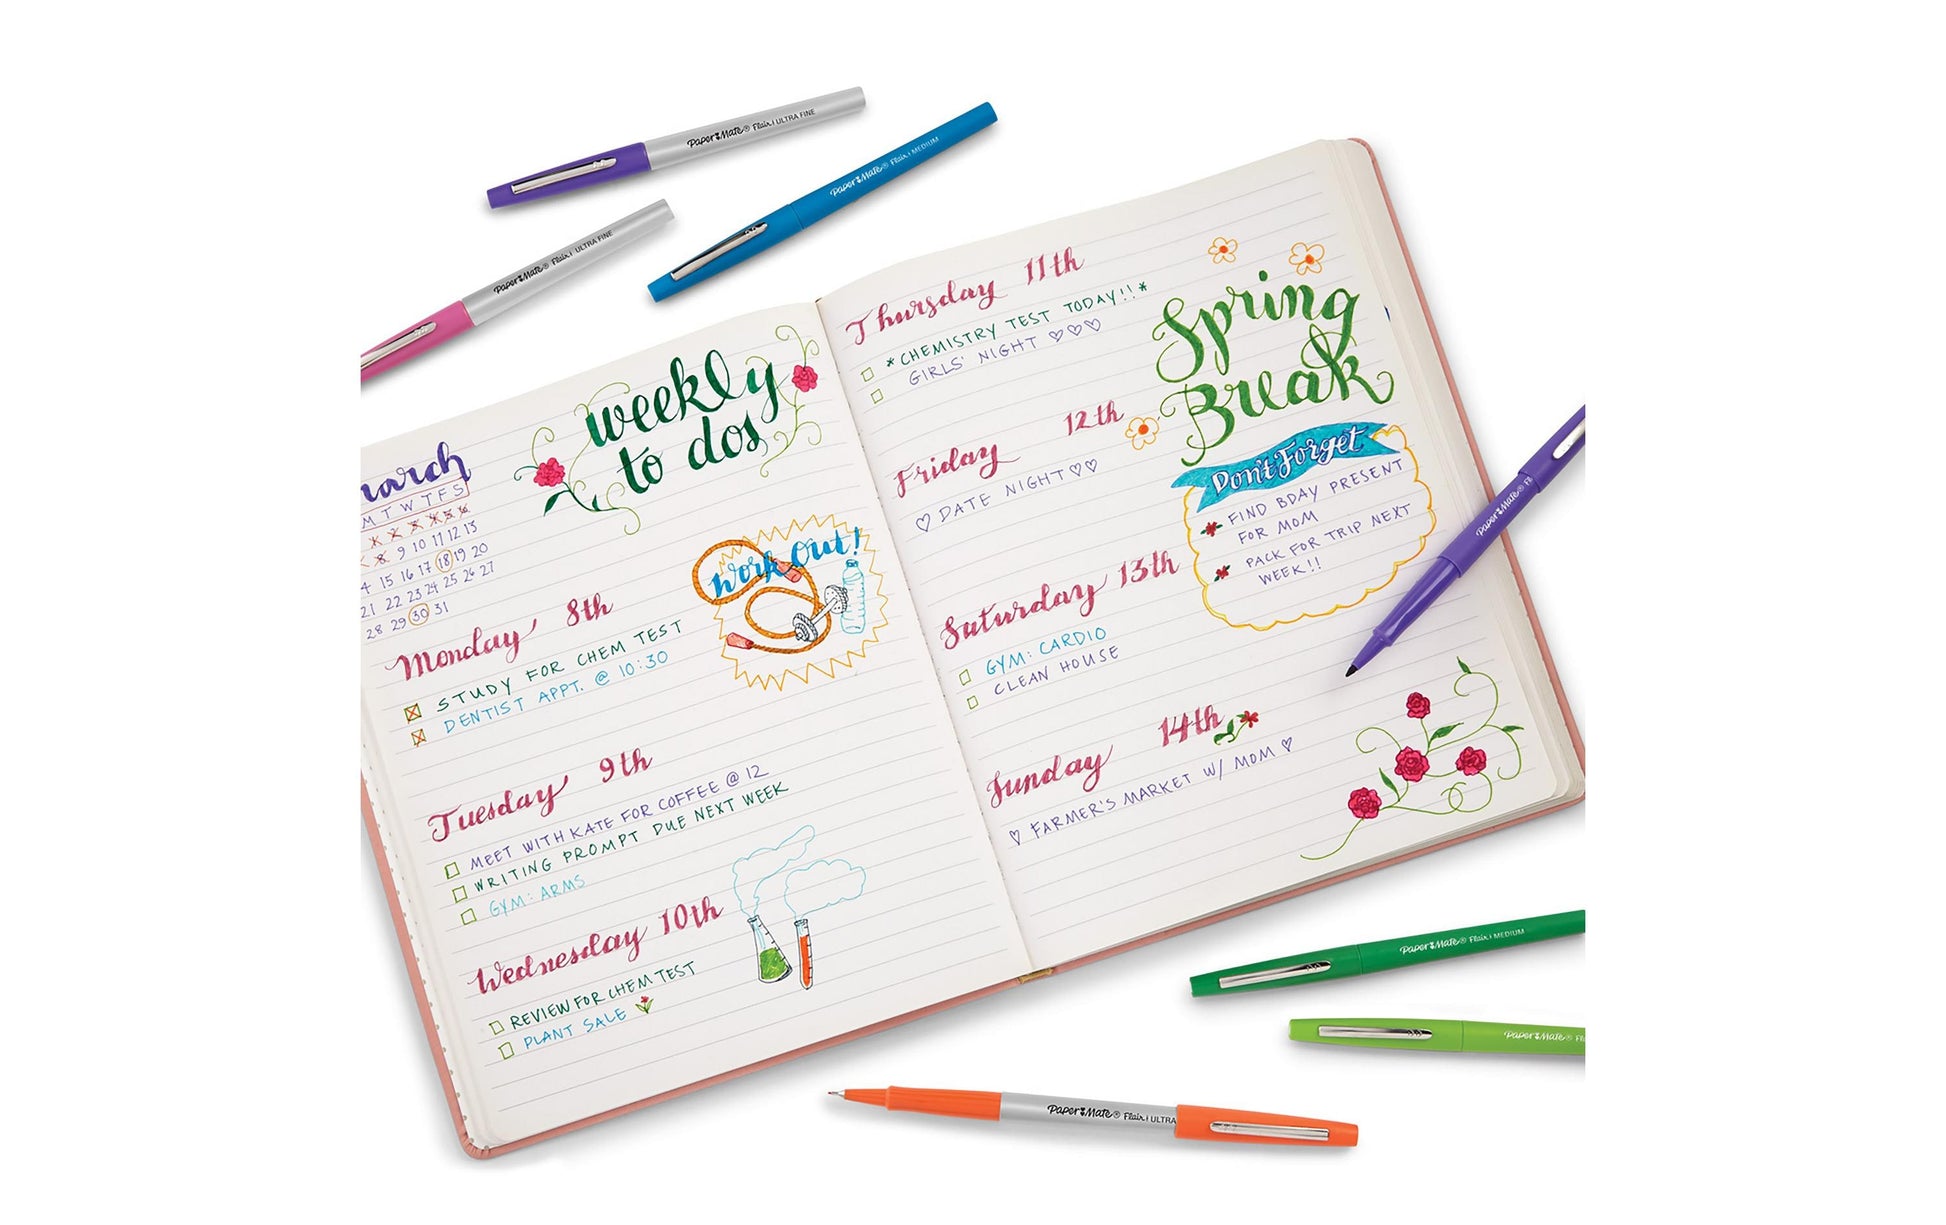 Paper Mate® Flair | ULTRA FINE
Paper Mate® Flair | MEDIUM
Paper Mate® Flair | ULTRA FINE
weekly
to dos
march
M T W T F S
9 10 11 12 13
15 16 17 18 19 20
21 22 23 24 25 26 27
28 29 30 31
Work Out!
Monday 8th
STUDY FOR CHEM TEST
DENTIST APPT. @ 10:30
Tuesday 9th
MEET WITH KATE FOR COFFEE @ 12
WRITING PROMPT DUE NEXT WEEK
GYM: ARMS
Wednesday 10th
REVIEW FOR CHEM TEST
PLANT SALE
Thursday 11th
*CHEMISTRY TEST TODAY!!*
GIRLS' NIGHT ♡♡♡
Friday 12th
♡ DATE NIGHT ♡♡
Saturday 13th
GYM: CARDIO
CLEAN HOUSE
Sunday 14th
♡ FARMER'S MARKET W/ MOM ♡
Spring
Break
Don't Forget
FIND BDAY PRESENT
FOR MOM
PACK FOR TRIP NEXT
WEEK!!
Paper Mate® Fl
Paper Mate® Flair | MEDIUM
Paper Mate® Fla
Paper Mate® Flair | ULTRA